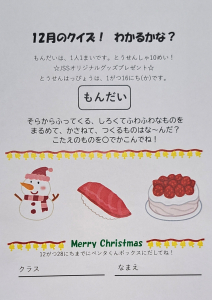 12月のクイズ！ わかるかな？
もんだいは、1人1まいです。とうせんしゃ10めい！
☆JSSオリジナルグッズプレゼント☆
とうせんはっぴょうは、1がつ16にち(か)です。
もんだい
そらからふってくる、しろくてふわふわなものを
まるめて、かさねて、つくるものはな～んだ？
こたえのものを〇でかこんでね！
Merry Christmas
12がつ28にちまでにペンタくんボックスにだしてね！
クラス
なまえ